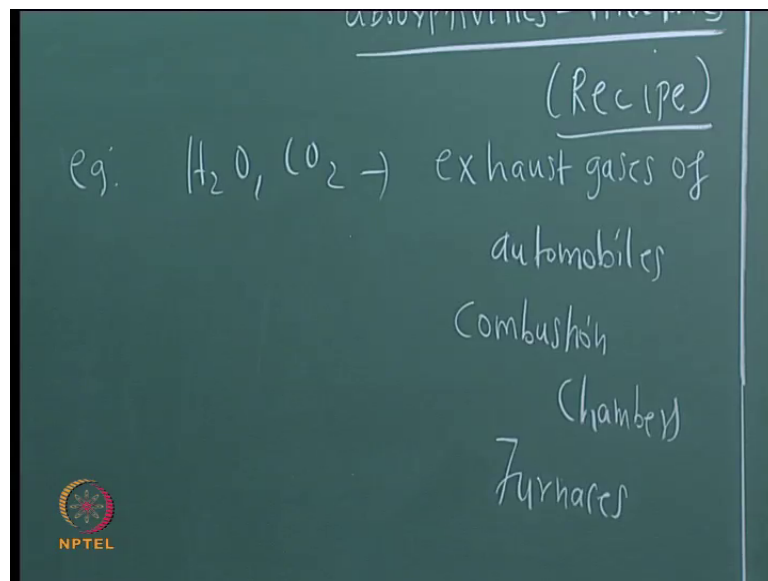 absorptivities - mixtures
(Recipe)
eg: H₂O, CO₂ → exhaust gases of
automobiles
Combustion
Chambers
Furnaces
NPTEL